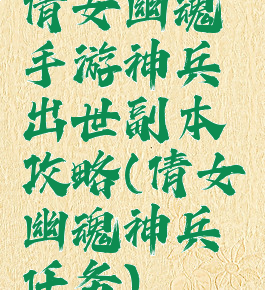 倩女幽魂
手游神兵
出世副本
攻略(倩女
幽魂神兵
任务)